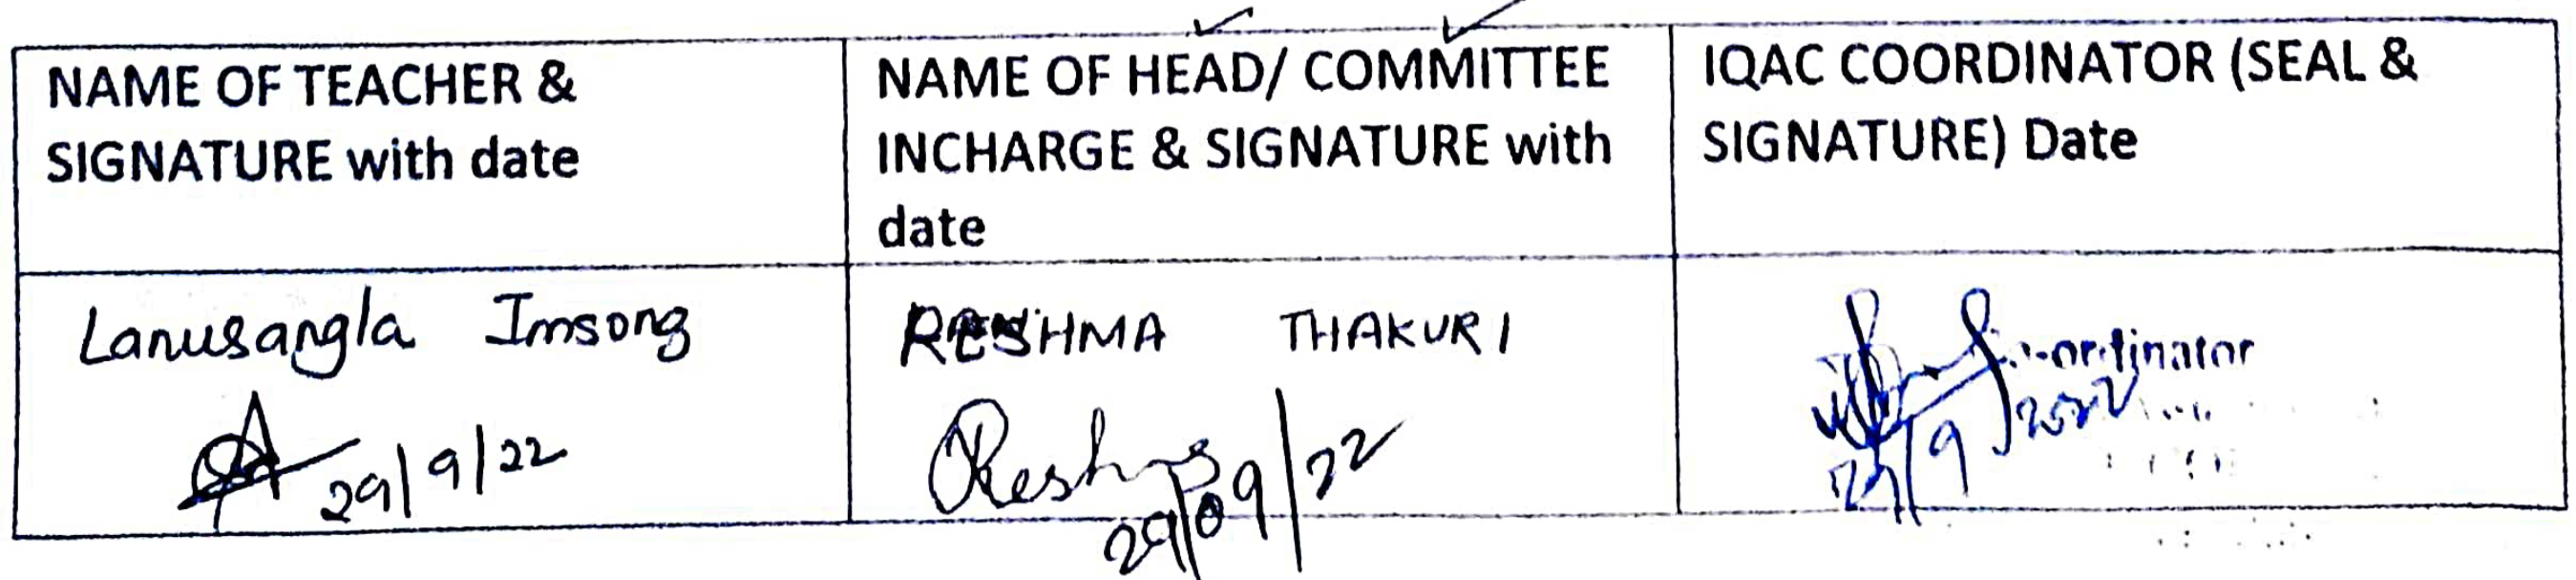 NAME OF TEACHER &
SIGNATURE with date
NAME OF HEAD/ COMMITTEE
INCHARGE & SIGNATURE with
date
IQAC COORDINATOR (SEAL &
SIGNATURE) Date
Lanusangla Imsong
29/9/22
RESHMA THAKURI
Reshma
29/09/22
Co-ordinator
29/9/2022